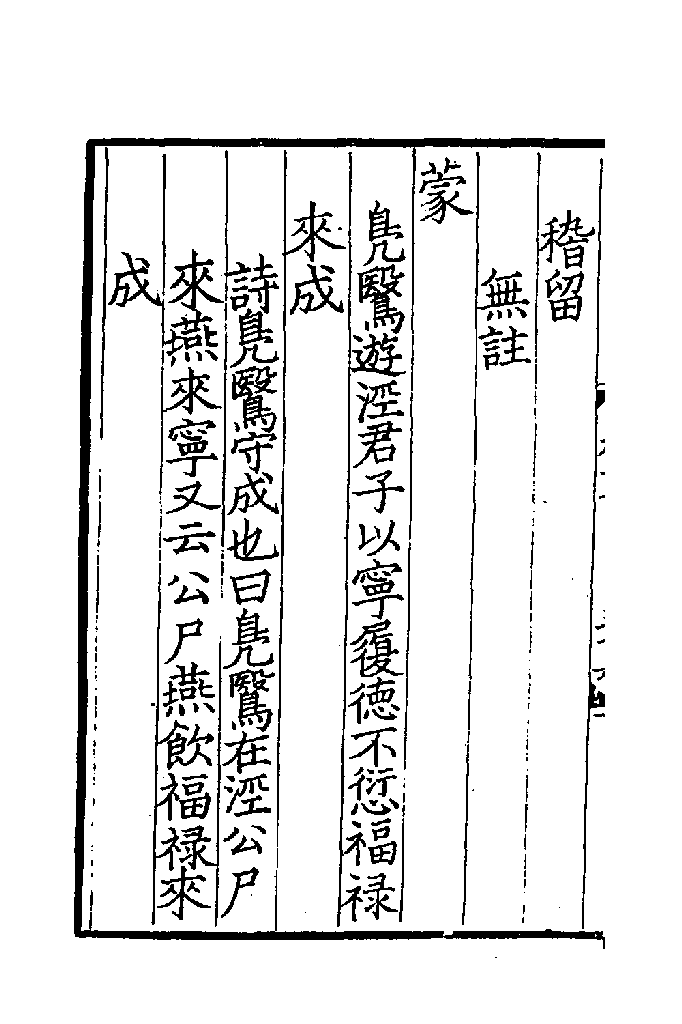 稽留
無註
蒙
鳧鷖遊涇君子以寧履德不愆福禄
來成
詩鳧鷖守成也曰鳧鷖在涇公尸
來燕來寧又云公尸燕飲福禄來
成